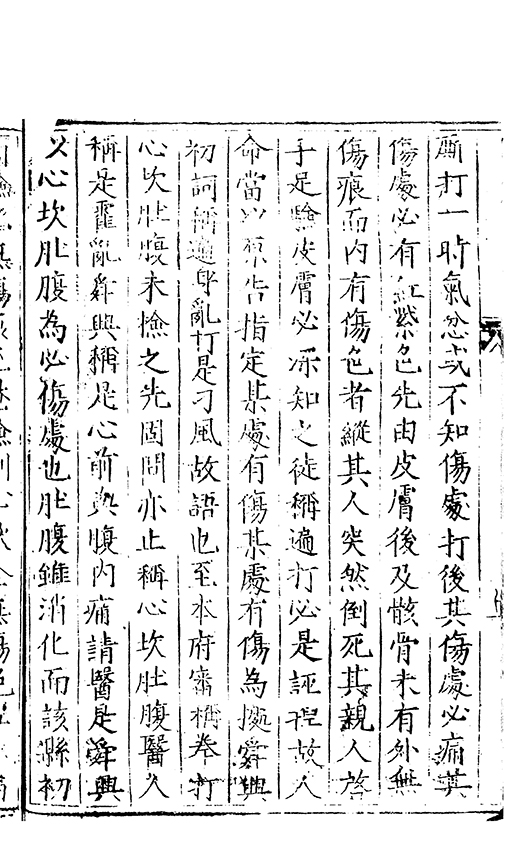 厮打一時氣忿或不知傷處打後其傷處必痛其
傷處必有紅紫色先由皮膚後及骸骨未有外無
傷痕而内有傷色者縱其人突然倒死其親人啓
手足驗皮膚必深知之徒稱遍打必是誣捏故人
命當以原告指定某處有傷某處有傷為據舜興
初詞稱遍身亂打是刁風故語也至本府審稱拳打
心坎肚腹未檢之先固問亦止稱心坎肚腹醫人
稱是霍亂舜興稱是心前與腹内痛請醫是舜興
以心坎肚腹為必傷處也肚腹雖消化而該縣初